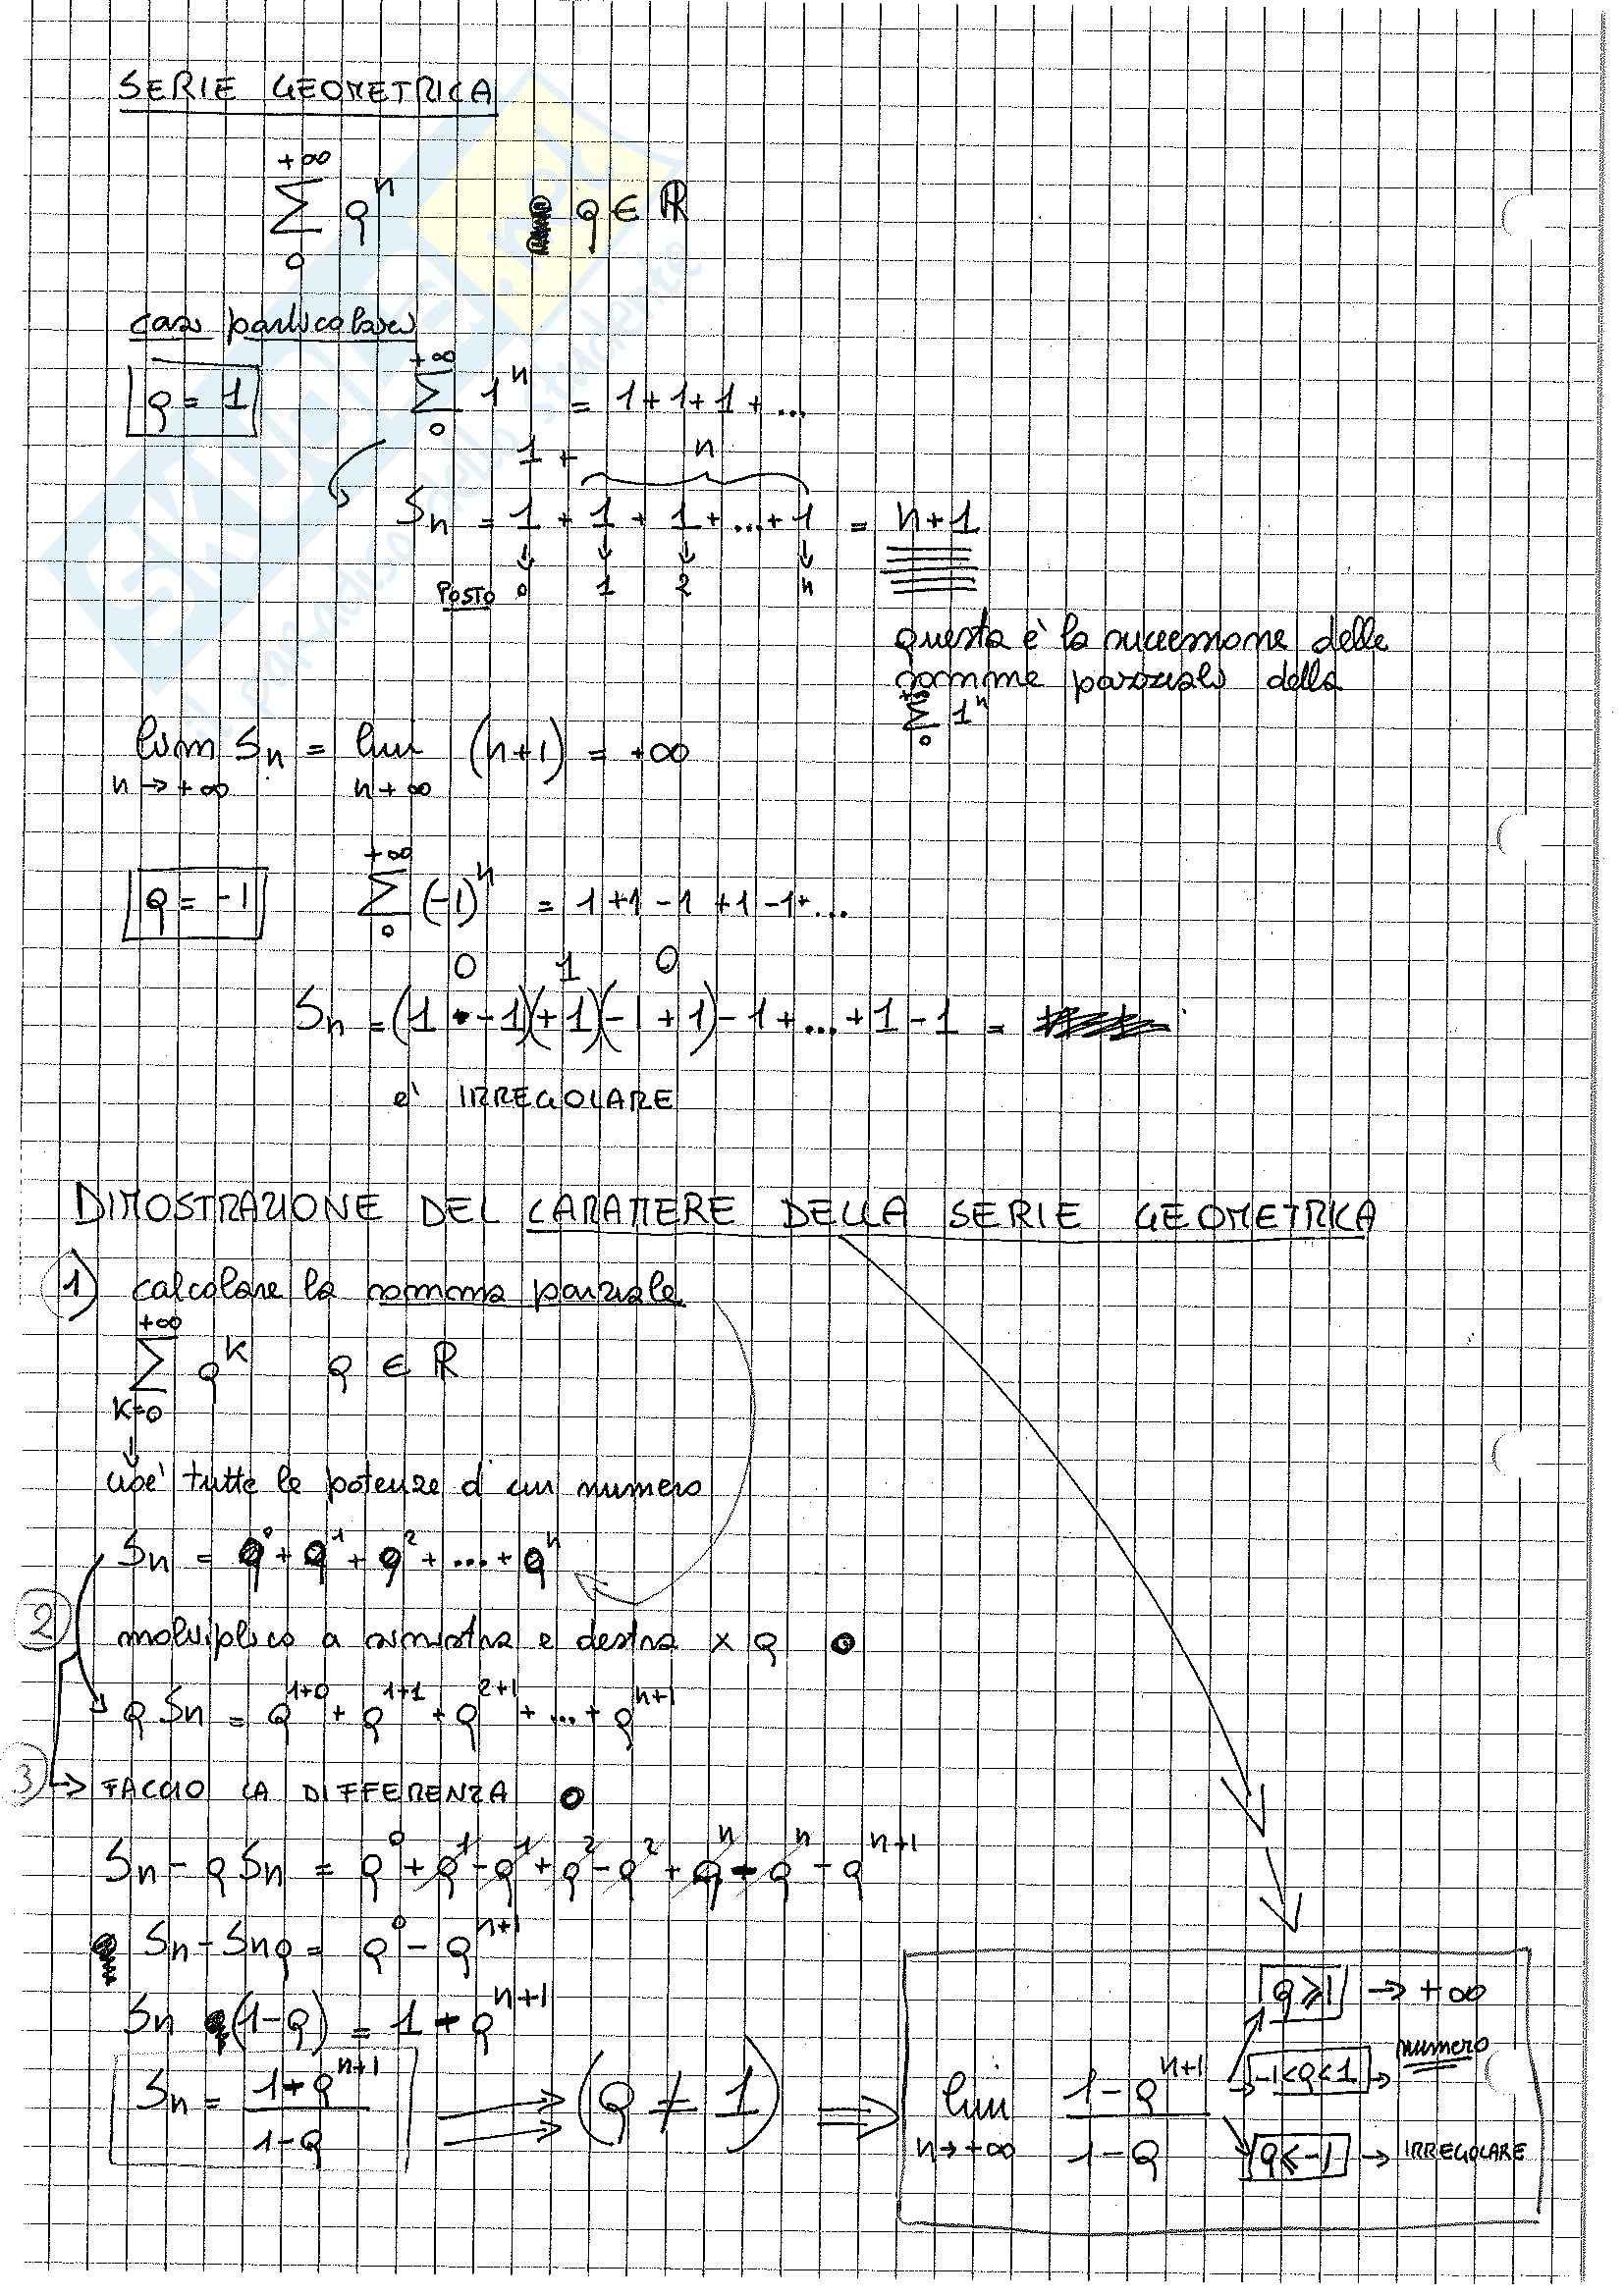 SERIE GEOMETRICA
+∞
∑ qⁿ q ∈ ℝ
0
casi particolari
q = 1
+∞
∑ 1ⁿ = 1+1+1+...
0
1 + n
Sn = 1 + 1 + 1 + ... + 1 = n+1
↓ ↓ ↓ ↓
POSTO 0 1 2 n
questa è la successione delle
somme parziali della
∑ 1ⁿ
0
lim Sn = lim (n+1) = +∞
n→+∞ n+∞
q = -1
+∞
∑ (-1)ⁿ = 1+1-1+1-1+...
0
0 1 0
Sn = (1 - 1)(+1)(-1+1)-1+...+1-1 =
è IRREGOLARE
DIMOSTRAZIONE DEL CARATTERE DELLA SERIE GEOMETRICA
1) calcolare la somma parziale
+∞
∑ qᴷ q ∈ ℝ
K=0
↓
cioè tutte le potenze d un numero
Sn = q⁰ + q¹ + q² + ... + qⁿ
2 moltiplico a sinistra e destra × q
q Sn = q¹⁺⁰ + q¹⁺¹ + q²⁺¹ + ... + qⁿ⁺¹
3 → FACCIO LA DIFFERENZA
Sn - q Sn = q⁰ + q¹ - q¹ + q² - q² + qⁿ - qⁿ - qⁿ⁺¹
Sn - Snq = q⁰ - qⁿ⁺¹
Sn (1-q) = 1 - qⁿ⁺¹
Sn = 1 - qⁿ⁺¹ / 1-q → (q ≠ 1) ⇒ lim n→+∞ 1-qⁿ⁺¹ / 1-q
q ⩾ 1 → +∞
-1<q<1 → numero
q ⩽ -1 → IRREGOLARE
SKUOLA.net
il paradiso dello studente